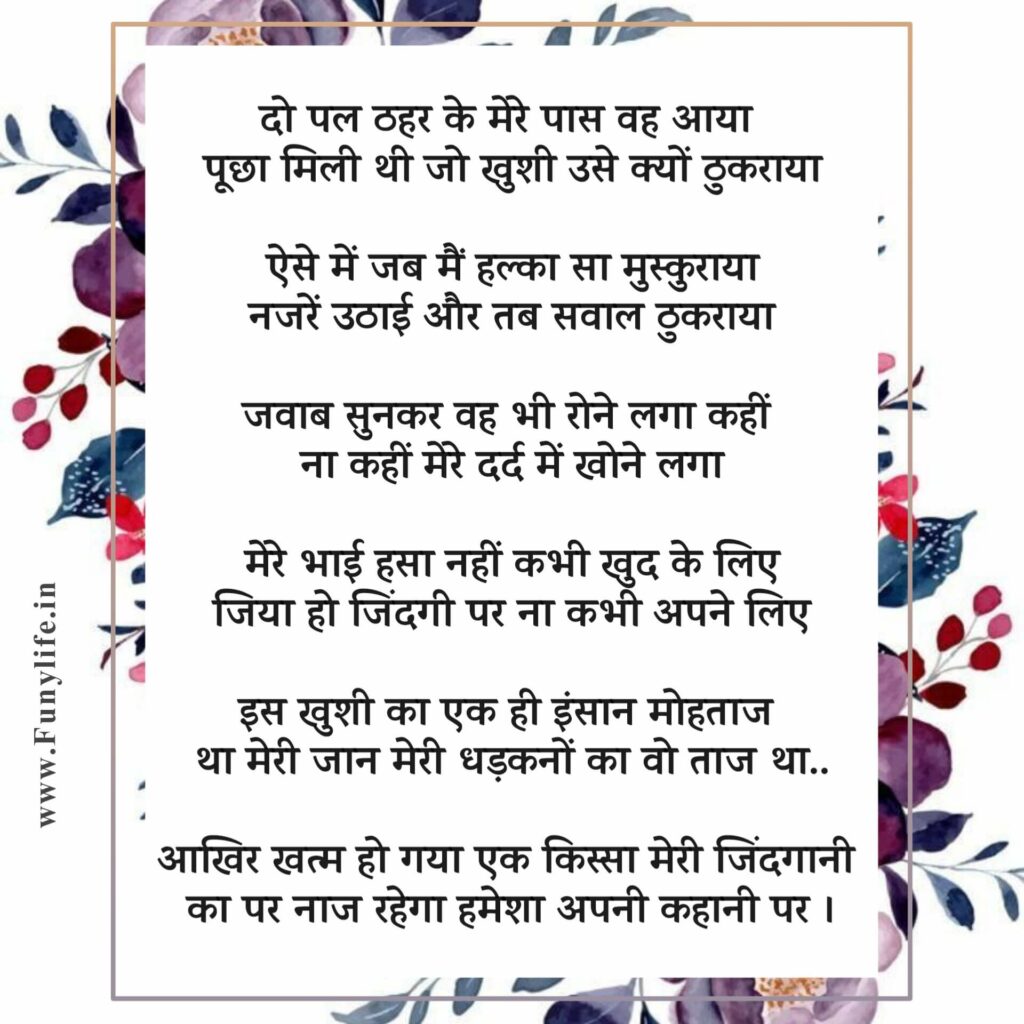 दो पल ठहर के मेरे पास वह आया
पूछा मिली थी जो खुशी उसे क्यों ठुकराया
ऐसे में जब मैं हल्का सा मुस्कुराया
नजरें उठाई और तब सवाल ठुकराया
जवाब सुनकर वह भी रोने लगा कहीं
ना कहीं मेरे दर्द में खोने लगा
मेरे भाई हसा नहीं कभी खुद के लिए
जिया हो जिंदगी पर ना कभी अपने लिए
इस खुशी का एक ही इंसान मोहताज
था मेरी जान मेरी धड़कनों का वो ताज था..
आखिर खत्म हो गया एक किस्सा मेरी जिंदगानी
का पर नाज रहेगा हमेशा अपनी कहानी पर ।
www.Funylife.in